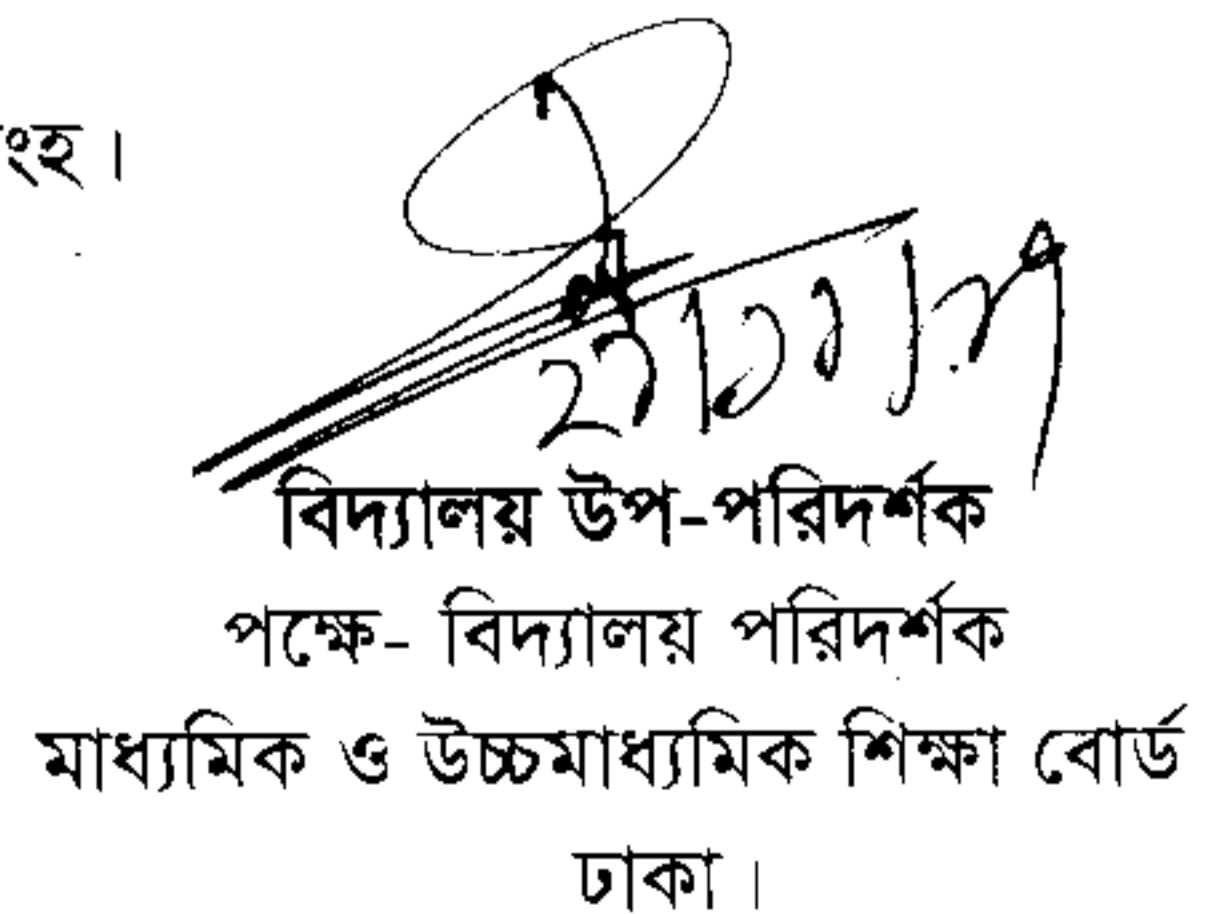 ংহ।
বিদ্যালয় উপ-পরিদর্শক
পক্ষে- বিদ্যালয় পরিদর্শক
মাধ্যমিক ও উচ্চমাধ্যমিক শিক্ষা বোর্ড
ঢাকা।